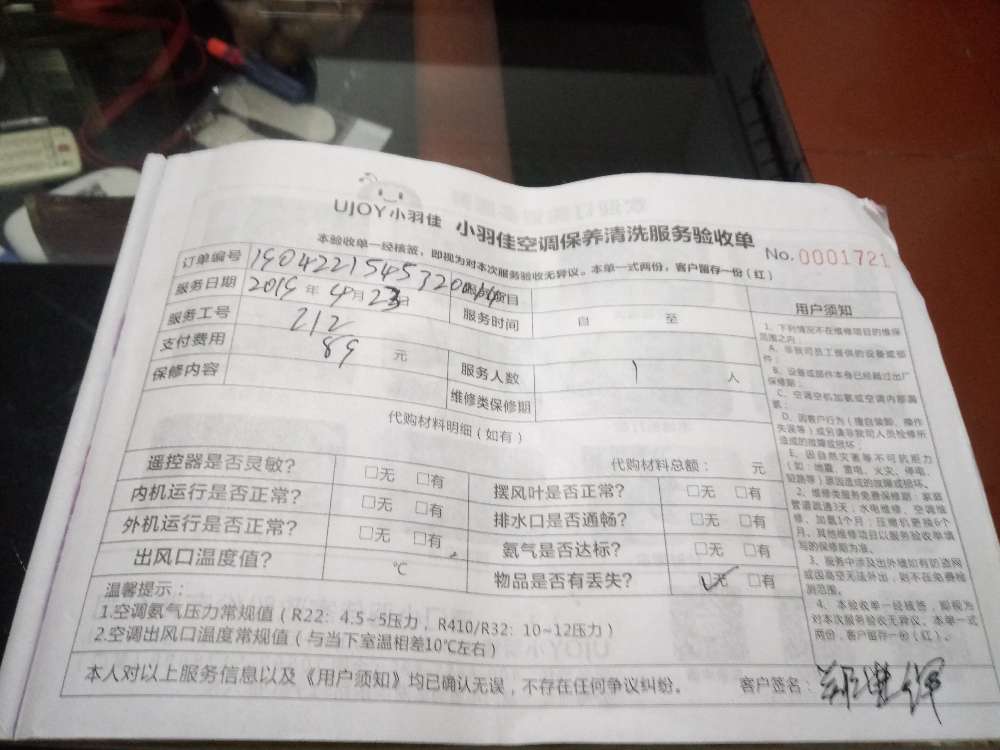 UJOY小羽佳 小羽佳空调保养清洗服务验收单
No. 0001721
本验收单一经核签，即视为对本次服务验收无异议。本单一式两份，客户留存一份（红）
订单编号
服务日期 2019 年 4 月 23 日
服务时间 自 至
服务工号 212
支付费用 89 元
服务人数 1 人
保修内容
维修类保修期
代购材料明细（如有）
代购材料总额： 元
遥控器是否灵敏？ □无 □有
摆风叶是否正常？ □无 □有
内机运行是否正常？ □无 □有
排水口是否通畅？ □无 □有
外机运行是否正常？ □无 □有
氨气是否达标？ □无 □有
出风口温度值？ ℃
物品是否有丢失？ ☑无 □有
温馨提示：
1.空调氨气压力常规值（R22：4.5~5压力，R410/R32：10~12压力）
2.空调出风口温度常规值（与当下室温相差10℃左右）
本人对以上服务信息以及《用户须知》均已确认无误，不存在任何争议纠纷。
客户签名：
用户须知
1、下列情况不在维修项目的维保
范围之内：
A、非我司员工提供的设备或部
件；
B、设备或部件本身已经超过出厂
保修期；
C、空调空机加氨或空调内部漏
氨；
D、因客户行为（擅自装卸、操作
失误等）或另请非我司人员检修所
造成的故障或损坏；
E、因自然灾害等不可抗拒力
（如：地震、雷电、火灾、停电、
短路等）原因造成的故障或损坏。
2、维修类服务免费保修期：家庭
管道疏通3天；水电维修、空调维
修、加氨1个月；压缩机更换6个
月。其他维修项目以服务验收单填
写的保修期为准。
3、服务中涉及出外墙如有防盗网
或因高空无法外出，则不在免费检
测范围。
4、本验收单一经核签，即视为
对本次服务验收无异议。本单一式
两份，客户留存一份（红）。